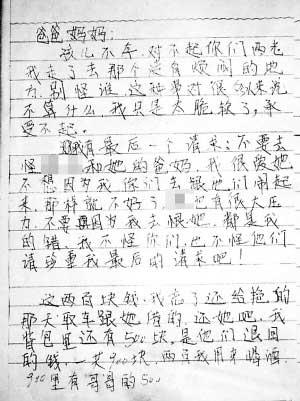 爸爸妈妈:
孩儿不幸,对不起你们两老
我走了去那个没有烦闹的地
方,别怪谁,这种事对很多人来说
不算什么,我只是太脆弱了,承
受不起。
我有最后一个请求:不要去
怪 和她的爸妈,我很爱她
不想因为我你们去跟他们闹起
来,那样就不好了 已有很大压
力,不要再因为我去恨她,都是我
的错,我不怪你们,也不怪他们
请尊重我最后的请求吧!
这两百块钱,我忘了还给她的
那天取车跟她借的,还她吧,我
背包里还有500块,是他们退回
的钱,一共900块,两百我用来喝酒,
900里有哥哥的500